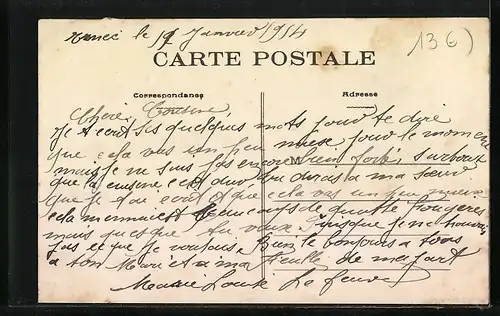 le 19 Janvier 1914
136)
CARTE POSTALE
Correspondance
Adresse
Chère Cousine,
Je t'ecrit ses quelques mots pour te dire
que cela vas un peu mieux, pour le moment
mais je ne suis pas encore bien forte, surtout
que la cuisine, c'est dur, tu diras a ma sœur
que je t'ai ecrit et que cela vas un peu mieux
cela m'ennuait beaucoup de quitter Fougères
mais quesque tu veux, puisque je ne trouvais
pas ce que je voulais. Bien le bonjour a tous
a ton Mari et a ma feuille de ma part
Louise Le feuvre